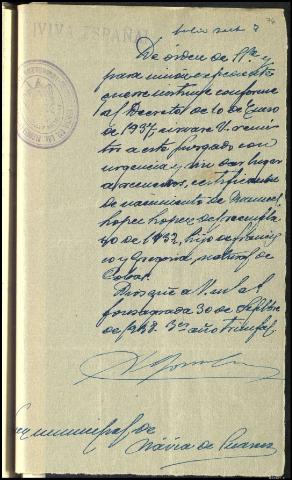 ¡VIVA ESPAÑA!
76
De órden de Sª y
para unión expediente
que se instruye conforme
al Decreto de 10 de Enero
de 1937 sírvase V. remi
tir a este juzgado con
urgencia y sin dar lugar
a recuerdos, certificado
de nacimiento de Manuel
Lopez Lopez de
de 1932, hijo de Francis
co y Gregoria, natural de
Dios gue a V. m. a.
30 de Septbre
de 1938. 3er año triunfal.
municipal de
Návia de Suarna